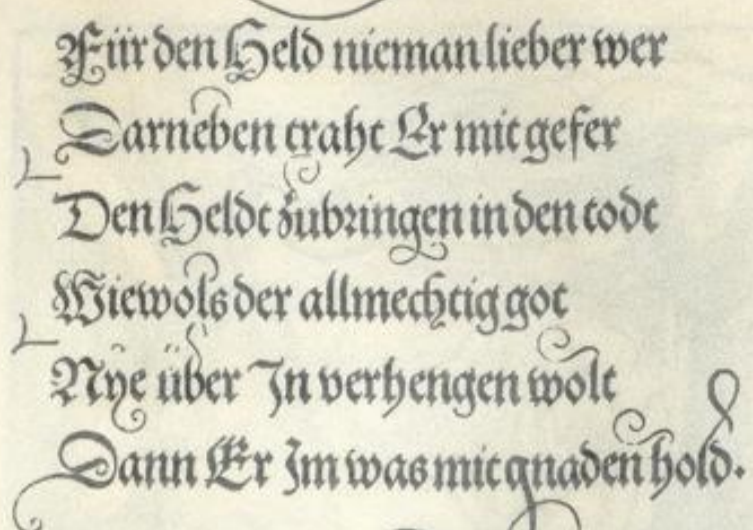 Für den Held nieman lieber wer
Darneben traht Er mit gefer
Den Heldt zubringen in den todt
Wiewols der allmechtig got
Nÿe über In verhengen wolt
Dann Er Im was mit gnaden hold.